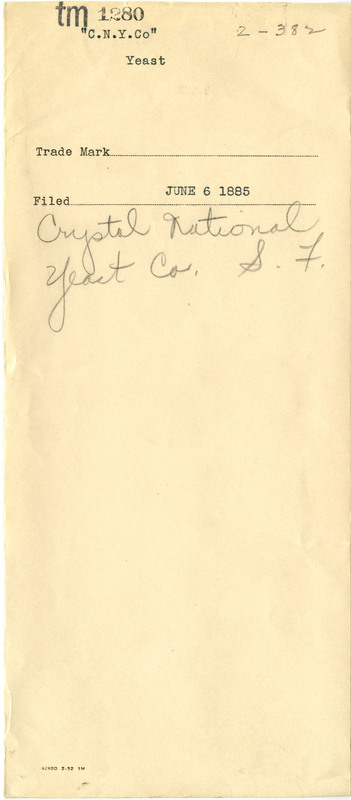 tm 1280
"C.N.Y.Co"
2-382
Yeast
Trade Mark
JUNE 6 1885
Filed
Crystal National
Yeast Co. S. F.
42450 2-32 1M